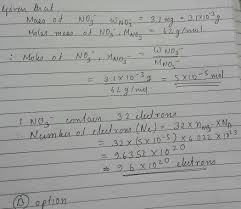 Given that
Mass of NO3⁻ W NO3⁻ = 3.1 mg = 3.1×10⁻³ g
Molar mass of NO3⁻, M NO3⁻ = 62 g/mol
∴ Moles of NO3⁻, n NO3⁻ = W NO3⁻
M NO3⁻
= 3.1×10⁻³ g = 5×10⁻⁵ mol
62 g/mol
∵ NO3⁻ contain 32 electrons
∴ Number of electrons (Ne) = 32 × n NO3⁻ × NA
= 32 × (5×10⁻⁵) × 6.022 × 10²³
= 9.6352 × 10²⁰
≈ 9.6 × 10²⁰ electrons
(B) option